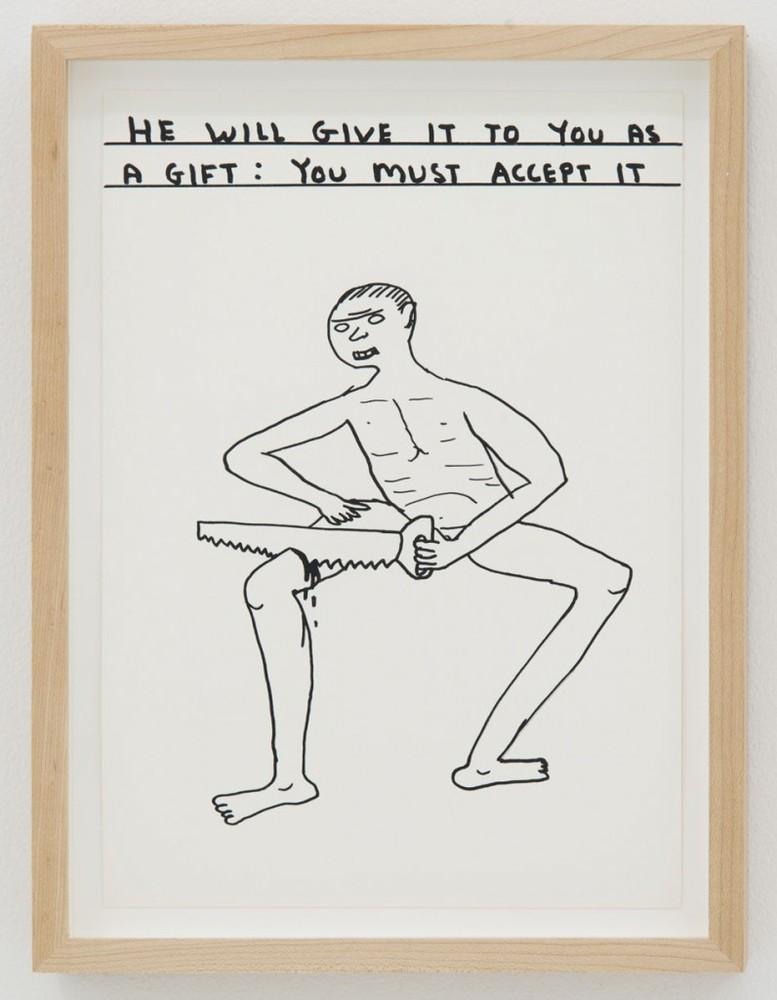 HE WILL GIVE IT TO YOU AS
A GIFT: YOU MUST ACCEPT IT